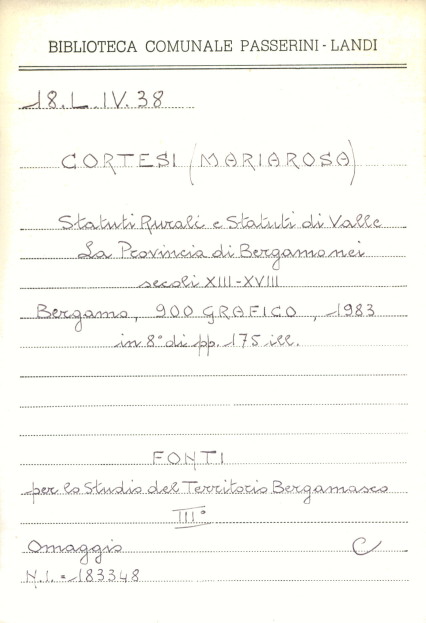 BIBLIOTECA COMUNALE PASSERINI - LANDI
18. L. IV. 38
CORTESI (MARIAROSA)
Statuti Rurali e Statuti di Valle
La Provincia di Bergamo nei
secoli XIII-XVIII
Bergamo, 900 GRAFICO, 1983
in 8° di pp. 175 ill.
FONTI
per lo Studio del Territorio Bergamasco
III°
Omaggio C
N.I. = 183348